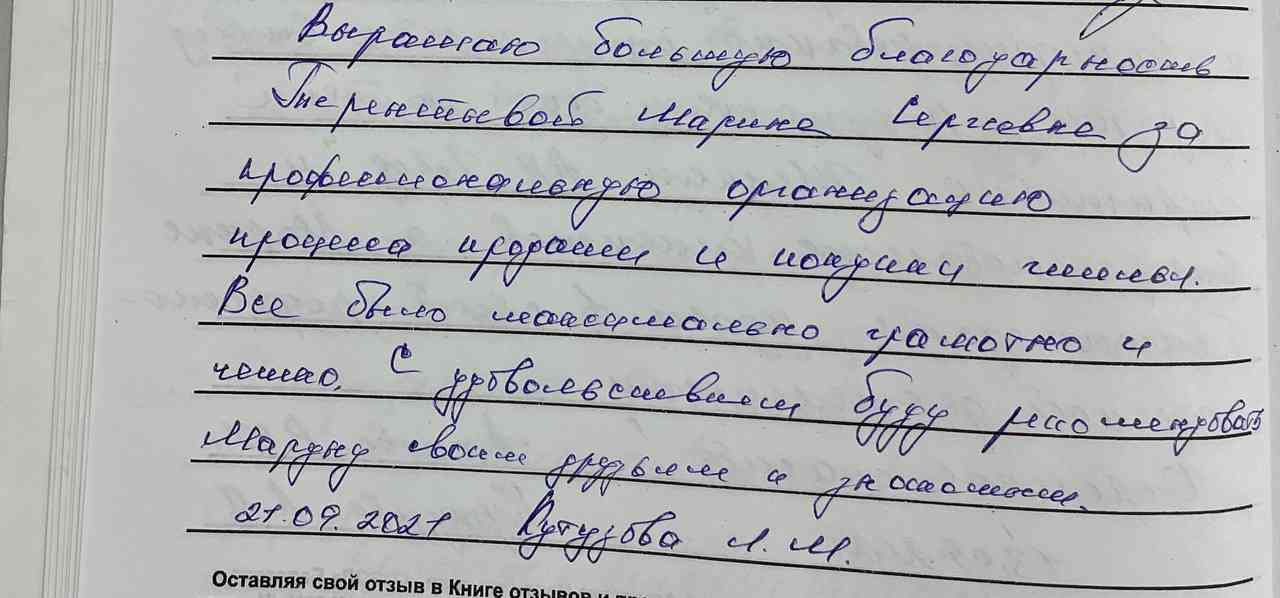 Выражаю большую благодарность
Терентьевой Марине Сергеевне за
профессиональную организацию
процесса продажи и покупки жилья.
Все было максимально грамотно и
четко. С удовольствием буду рекомендовать
Марину своим друзьям и знакомым.
21.09.2021 Кутузова Л.М.
Оставляя свой отзыв в Книге отзывов и